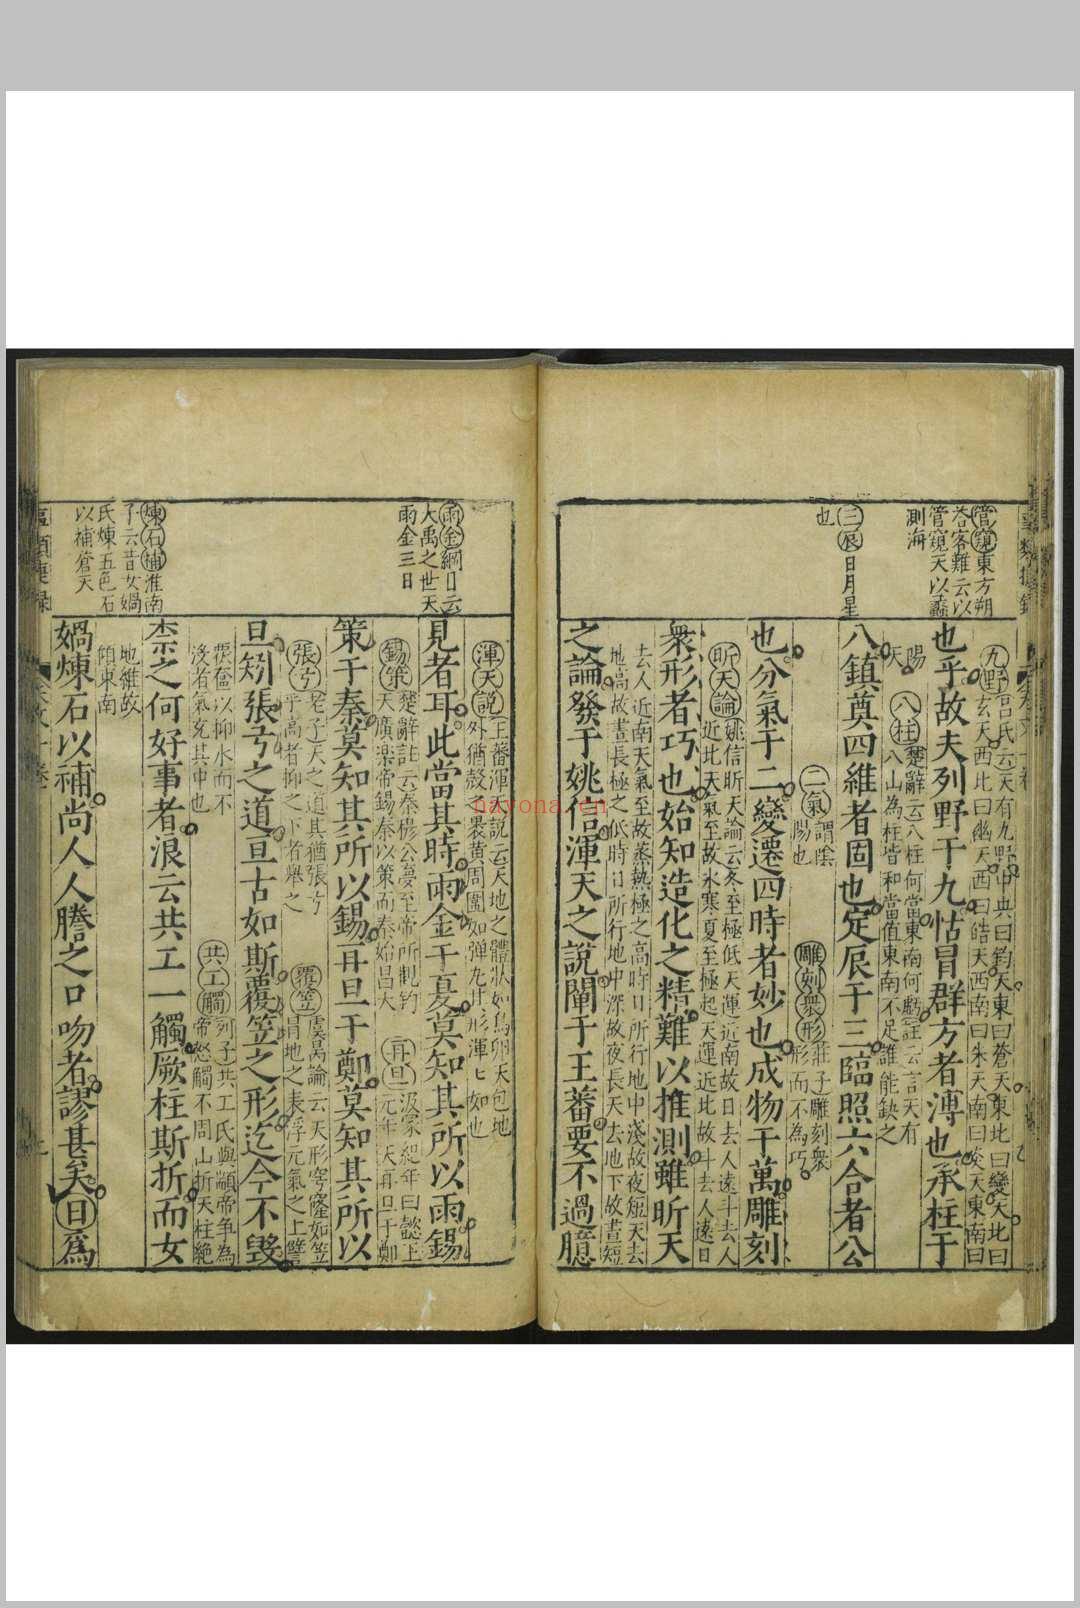 管窺東方朔
答客難云以
管窺天以蠡
測海
三辰日月星
也
九野呂氏云天有九野中央曰鈞天東曰蒼天東北曰變天北曰
玄天西北曰幽天西曰皓天西南曰朱天南曰炎天東南曰
也乎故夫列野于九怙冒群方者溥也承柱于
陽
天
八柱楚辭云八柱何當東南何虧註云言天有
八山為柱皆和當值東南不足誰能缺之
八鎮奠四維者固也定辰于三臨照六合者公
二氣謂陰
陽也
雕刻衆形莊子雕刻衆
形而不為巧
也分氣于二變遷四時者妙也成物于萬雕刻
昕天論姚信昕天論云冬至極低天運近南故日去人遠斗去人
近北天氣至故氷寒夏至極起天運近北故斗去人遠日
衆形者巧也始知造化之精難以推測雖昕天
去人近南天氣至故蒸熱極之高時日所行地中淺故夜短天去
地高故晝長極之低時日所行地中深故夜長天去地下故晝短
之論發于姚信渾天之說闡于王蕃要不過臆
雨金綱目云
大禹之世天
雨金三日
煉石補淮南
子云昔女媧
氏煉五色石
以補倉天
渾天說王蕃渾天說云天地之體狀如鳥卵天包地
外猶殼之裹黄周圍如彈丸其形渾匕如也
見者耳此當其時雨金于夏莫知其所以雨錫
錫策楚辭註云秦穆公夢至帝所觀鈞
天廣樂帝錫秦以策而秦始昌大
再旦汲冢紀年曰懿王
元年天再旦于鄭
策于秦莫知其所以錫再旦于鄭莫知其所以
張弓老子天之道其猶張弓
乎高者抑之下者舉之
覆笠虞昺論云天形穹窿如笠
冒地之表浮元氣之上譬
旦矧張弓之道亘古如斯覆笠之形迄今不毀
覆奩以抑水而不
沒者氣充其中也
共工觸列子共工氏與顓帝争為
帝怒觸不周山折天柱絶
柰之何好事者浪云共工一觸厥柱斯折而女
地維故
傾東南
媧煉石以補尚人人騰之口吻者謬甚矣日爲
nayona.cn